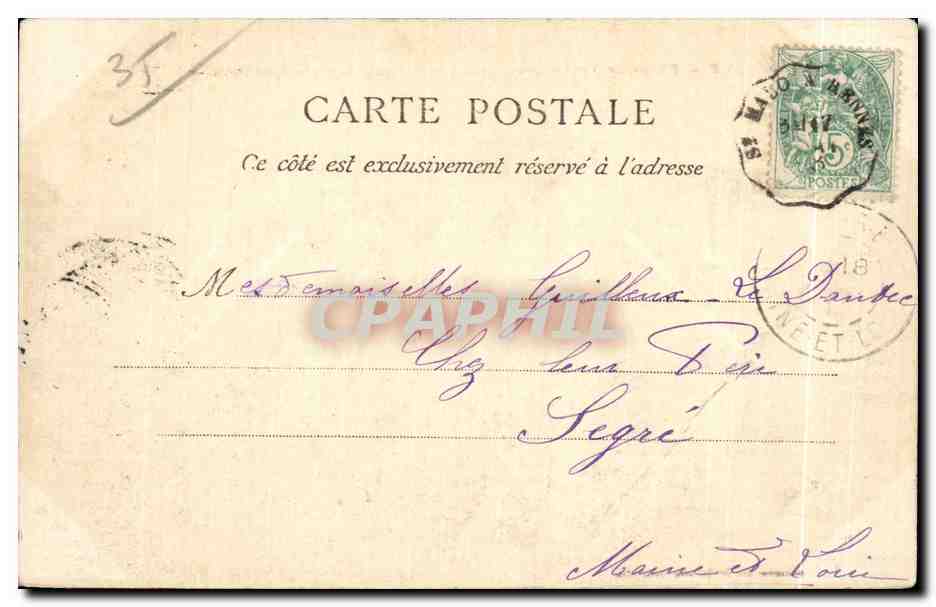 35
CARTE POSTALE
Ce côté est exclusivement réservé à l'adresse
St MALO A RENNES
5c
POSTES
18
NE ET
Mesdemoiselles Guilleux - Le Dantec
CPAPHIL
Chez leur Père
Segré
Maine et Loire